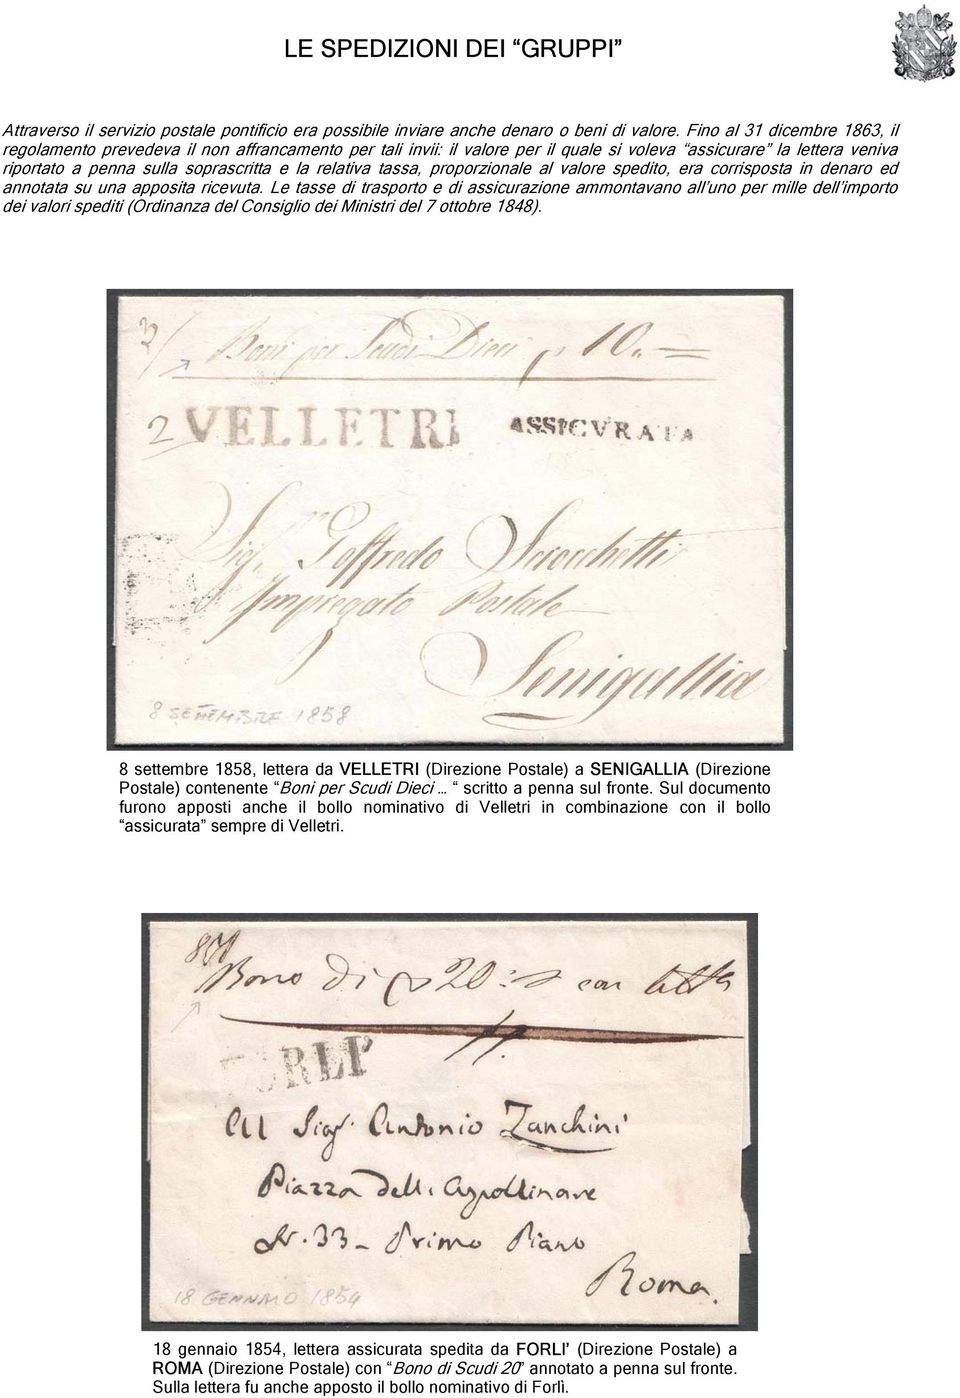 LE SPEDIZIONI DEI “GRUPPI”
Attraverso il servizio postale pontificio era possibile inviare anche denaro o beni di valore. Fino al 31 dicembre 1863, il
regolamento prevedeva il non affrancamento per tali invii: il valore per il quale si voleva “assicurare” la lettera veniva
riportato a penna sulla soprascritta e la relativa tassa, proporzionale al valore spedito, era corrisposta in denaro ed
annotata su una apposita ricevuta. Le tasse di trasporto e di assicurazione ammontavano all’uno per mille dell’importo
dei valori spediti (Ordinanza del Consiglio dei Ministri del 7 ottobre 1848).
3/ Boni per Scudi Dieci 10
2 VELLETRI ASSICVRATA
Sig. Goffredo
Impregato Postale
Senigallia
8 SETTEMBRE 1858
8 settembre 1858, lettera da VELLETRI (Direzione Postale) a SENIGALLIA (Direzione
Postale) contenente “Boni per Scudi Dieci …“ scritto a penna sul fronte. Sul documento
furono apposti anche il bollo nominativo di Velletri in combinazione con il bollo
“assicurata” sempre di Velletri.
Bono di 20 con
FORLI'
All Sigr. Antonio Zanchini
Piazza dell. Apollinare
N. 33 - Primo Piano
Roma.
18 GENNAIO 1854
18 gennaio 1854, lettera assicurata spedita da FORLI’ (Direzione Postale) a
ROMA (Direzione Postale) con “Bono di Scudi 20” annotato a penna sul fronte.
Sulla lettera fu anche apposto il bollo nominativo di Forlì.